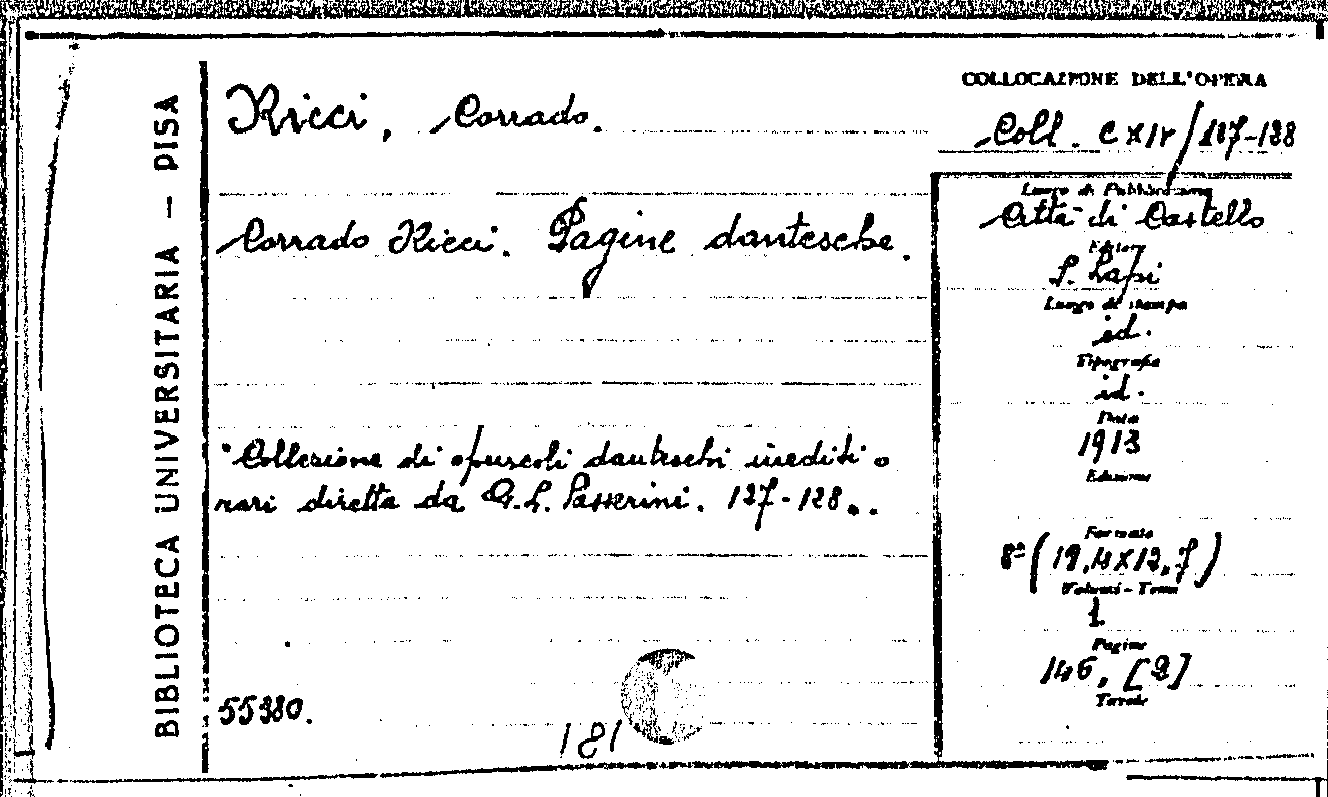 BIBLIOTECA UNIVERSITARIA — PISA
Ricci, Corrado.
Corrado Ricci. Pagine dantesche.
"Collezione di opuscoli danteschi inediti o
rari diretta da G. L. Passerini. 127-128..
55380.
181
COLLOCAZIONE DELL'OPERA
Coll. CXIV/127-128
Luogo di Pubblicazione
Città di Castello
Editore
S. Lapi
Luogo di stampa
id.
Tipografia
id.
Data
1913
Edizione
Formato
8º (19,4x12,7)
Volumi - Tomi
1.
Pagine
146, [2]
Tavole